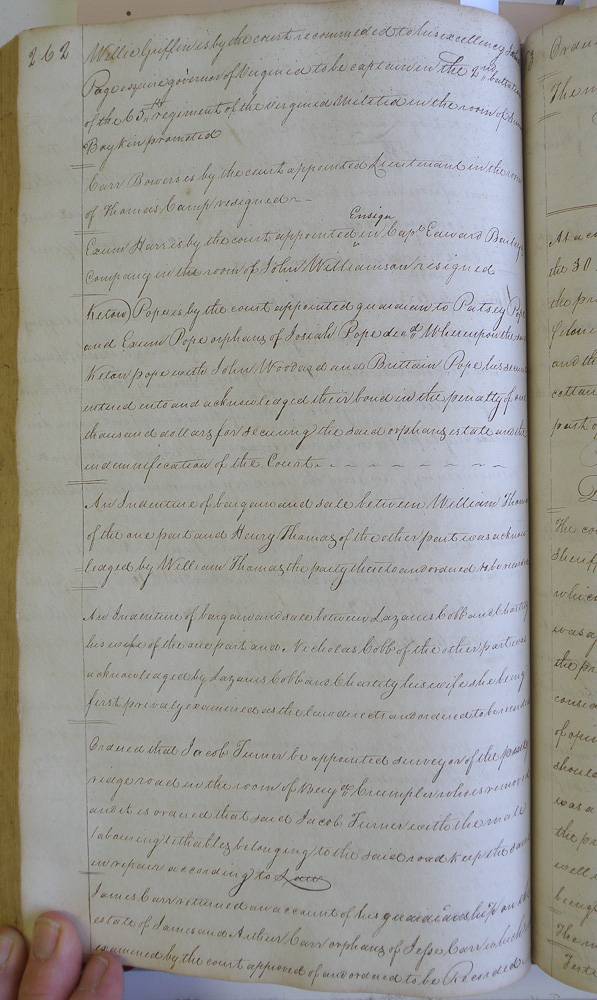 262
Willie Griffin is by the court recommended to his excellency John
Page esquire governor of Virginia to be captain in the 2nd battalion
of the 65th regiment of the Virginia Militia in the room of
Boykin promoted
Carr Bowers is by the court appointed Lieutenant in the room
of Thomas Camp resigned
Ensign
Exum Harris by the court appointed in Capt Edward Bailey's
Company in the room of John Williamson resigned
Pope is by the court appointed guardian to Patsey Pope
and Exum Pope orphans of Josiah Pope decd Whereupon the said
pope with John Woodard and Brittain Pope his
entered into and acknowledged their bond in the penalty of one
thousand dollars for securing the said orphans estate and the
indemnification of the Court
An Indenture of bargain and sale between William Thomas
of the one part and Henry Thomas of the other part was acknow
ledged by William Thomas the party thereto and ordered to be recorded
An Indenture of bargain and sale between Lazarus Cobb and Charity
his wife of the one part and Nicholas Cobb of the other part was
acknowledged by Lazarus Cobb and Charity his wife she being
first privaly examined as the law directs and ordered to be recorded
Ordered that Jacob Turner be appointed surveyor of the
ridge road in the room of Benj Crumpler who is removed
and it is ordered that said Jacob Turner with the male
labouring tithables belonging to the said road keep the same
in repair according to Law
James Carr returned an account of his guardianship on the
estate of James and Arthur Carr orphans of Jesse Carr which
examined by the court approved of and ordered to be Recorded